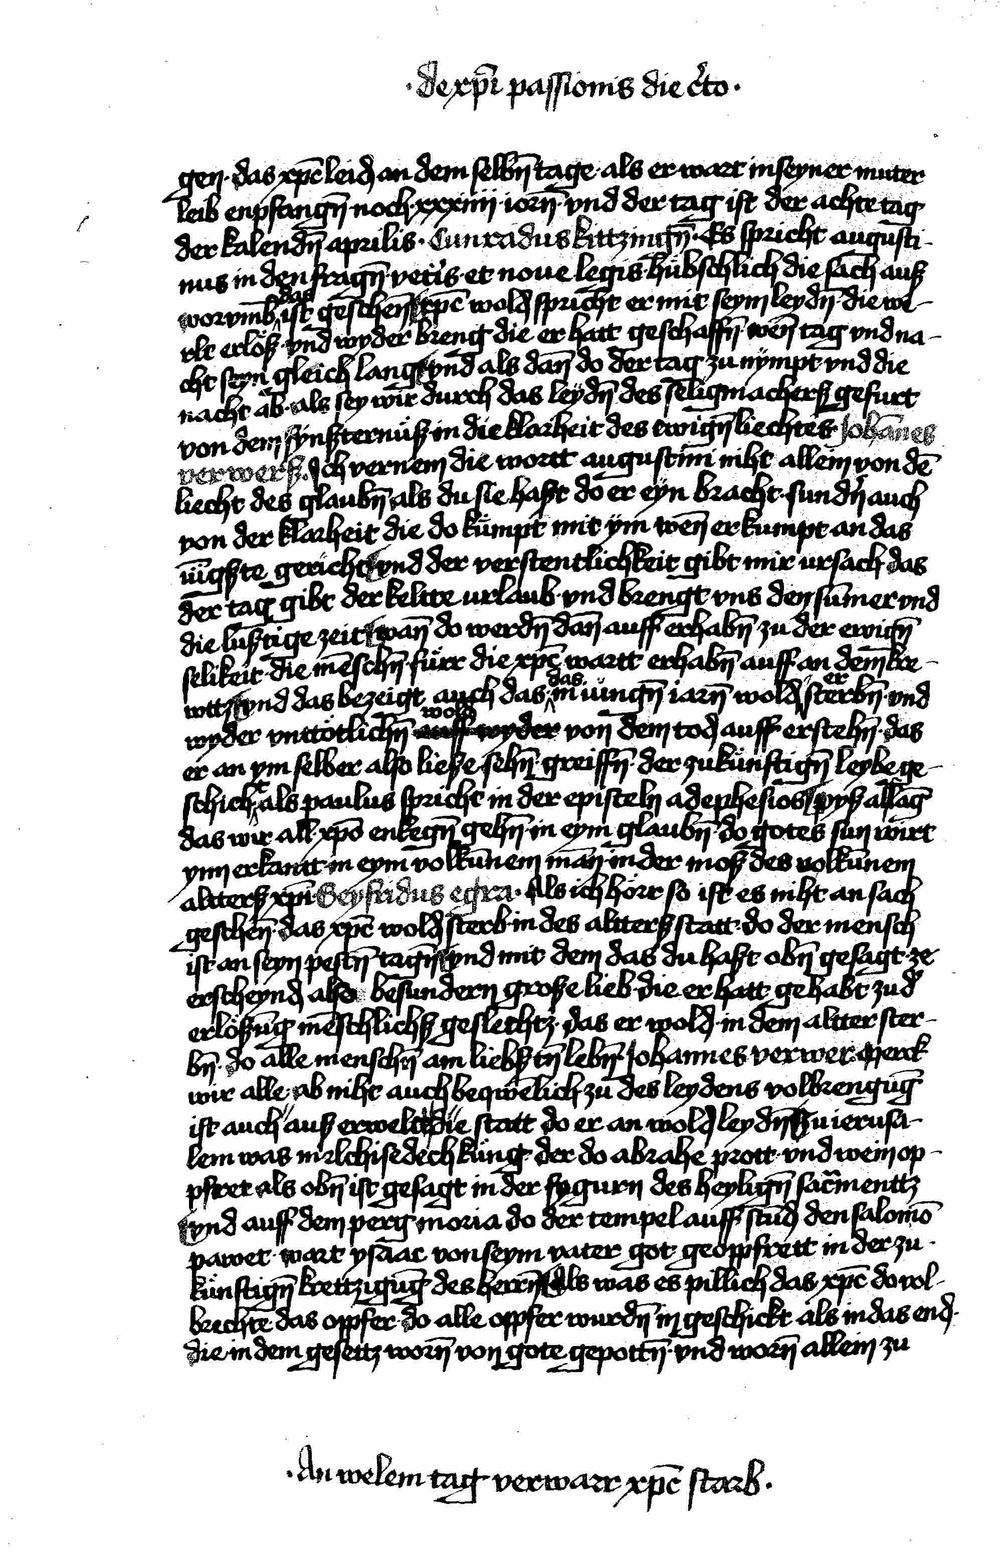 · de xp̄i passionis die c̉to ·
gen · das xp̄c leid an dem selbn̄ tage · als er wart in seyner muter
leib enpfangn̄ noch xxxiiii iorn̄ · vnd der tag ist der achte tag
der kalendn̄ aprilis · Cunradus kittzingn̄ · Es spricht augusti-
nus in den fragn̄ vet̉is et noue legis hübschlich die sach auß
worvmb das ist geschen̄ xp̄c wold spricht er mit seym leydn̄ die we-
rlt erlöß vnd wyder breng die er hatt geschaffn̄ wen̄ tag vnd na-
cht seyn gleich lang vnd als dan̄ do der tag zu nÿmpt vnd die
nacht ab · als sey wir durch das leydn̄ des seligmacherß gefurt
von dem fynßternüß in die klorheit des ewign̄ liechtes Johan̄es
verwerß Ich vernem die wortt augustini niht allein von dē
liecht des glaubn̄ als du sie haßt do er eyn bracht · sundn̉ auch
von der klorheit die do kümpt mit ym wen̄ er kumpt an das
iūgßte gericht vnd der verstentlichkeit gibt mir ursach das
der tag gibt der keltte urlaub · vnd brengt vns den sūmer vnd
die lußtige zeit wan̄ do werdn̄ dan̄ auff erhabn̄ zu der ewign̄
selikeit die mēschn̄ fürr die xp̄c wartt erhabn̄ auff an dem kre-
wtz vnd das bezeigt auch das das in iüngn̄ iarn̄ wold er sterbn̄ vnd
wyder vnttötlichn̄ wold wyder von dem tod auff erstehn̄ · das
er an ym selber also ließe sehn̄ greiffn̄ der zukünftign̄ leybe ge-
schich als paulus spricht in der episteln ad ephesios pyß allaḡ
das wir all xpō enkegn̄ gehn̄ in eym glaubn̄ do gotes sun wirt
ynn erkantt in eym volkūnem man̄ in der moß des volkūnem
altterß xp̄i · Seyfridus egra · Als ich hörr so ist es niht an sach
geschen̄ das xp̄c wold sterb in des altterß statt do der mensch
ist an seyn pestn̄ tagn̄ vnd mit dem das du haßt obn̄ gesagt ze
erscheynd also besundern große lieb die er hatt gehabt zu d̉
erlößūg mēschlichß geslechtz das er wold in dem altter ster-
bn̄ do alle menschn̄ am liebßtn̄ lebn̄ Johannes verwer Merck
wir alle ab niht auch beqwēlich zu des leydens volbrengūg
ist auch auß erwelt die statt do er an wold leydn̄ Zu ierusa-
lem was melchisedech küng der do abrahe prott vnd wein op-
pfret als obn̄ ist gesagt in der fygurn des heylign̄ sacr̄menttz
vnd auff dem perg moria do der tempel auff stūd den salomō
pawet wart ysaac von seym vater got geöppfrett in der zu
künftign̄ krettzigūg des herrn̄ Als was es pillich das xp̄c do vol-
brechte das oppfer do alle oppfer wurdn̄ in geschickt als in das end
die in dem gesettz worn̄ von gote gepottn̄ vnd worn̄ allein zu
· An welem tag verwarr xp̄c starb ·